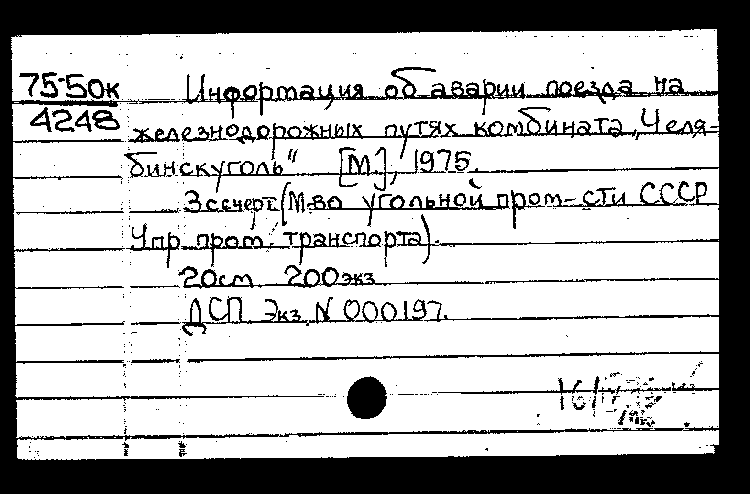 75-50к
4248
Информация об аварии поезда на
железнодорожных путях комбината „Челя-
бинскуголь“ [М.], 1975.
3 с. с черт. (М-во угольной пром-сти СССР
Упр. пром. транспорта).
20 см 200 экз.
ДСП Экз. N 000197.
16/IV